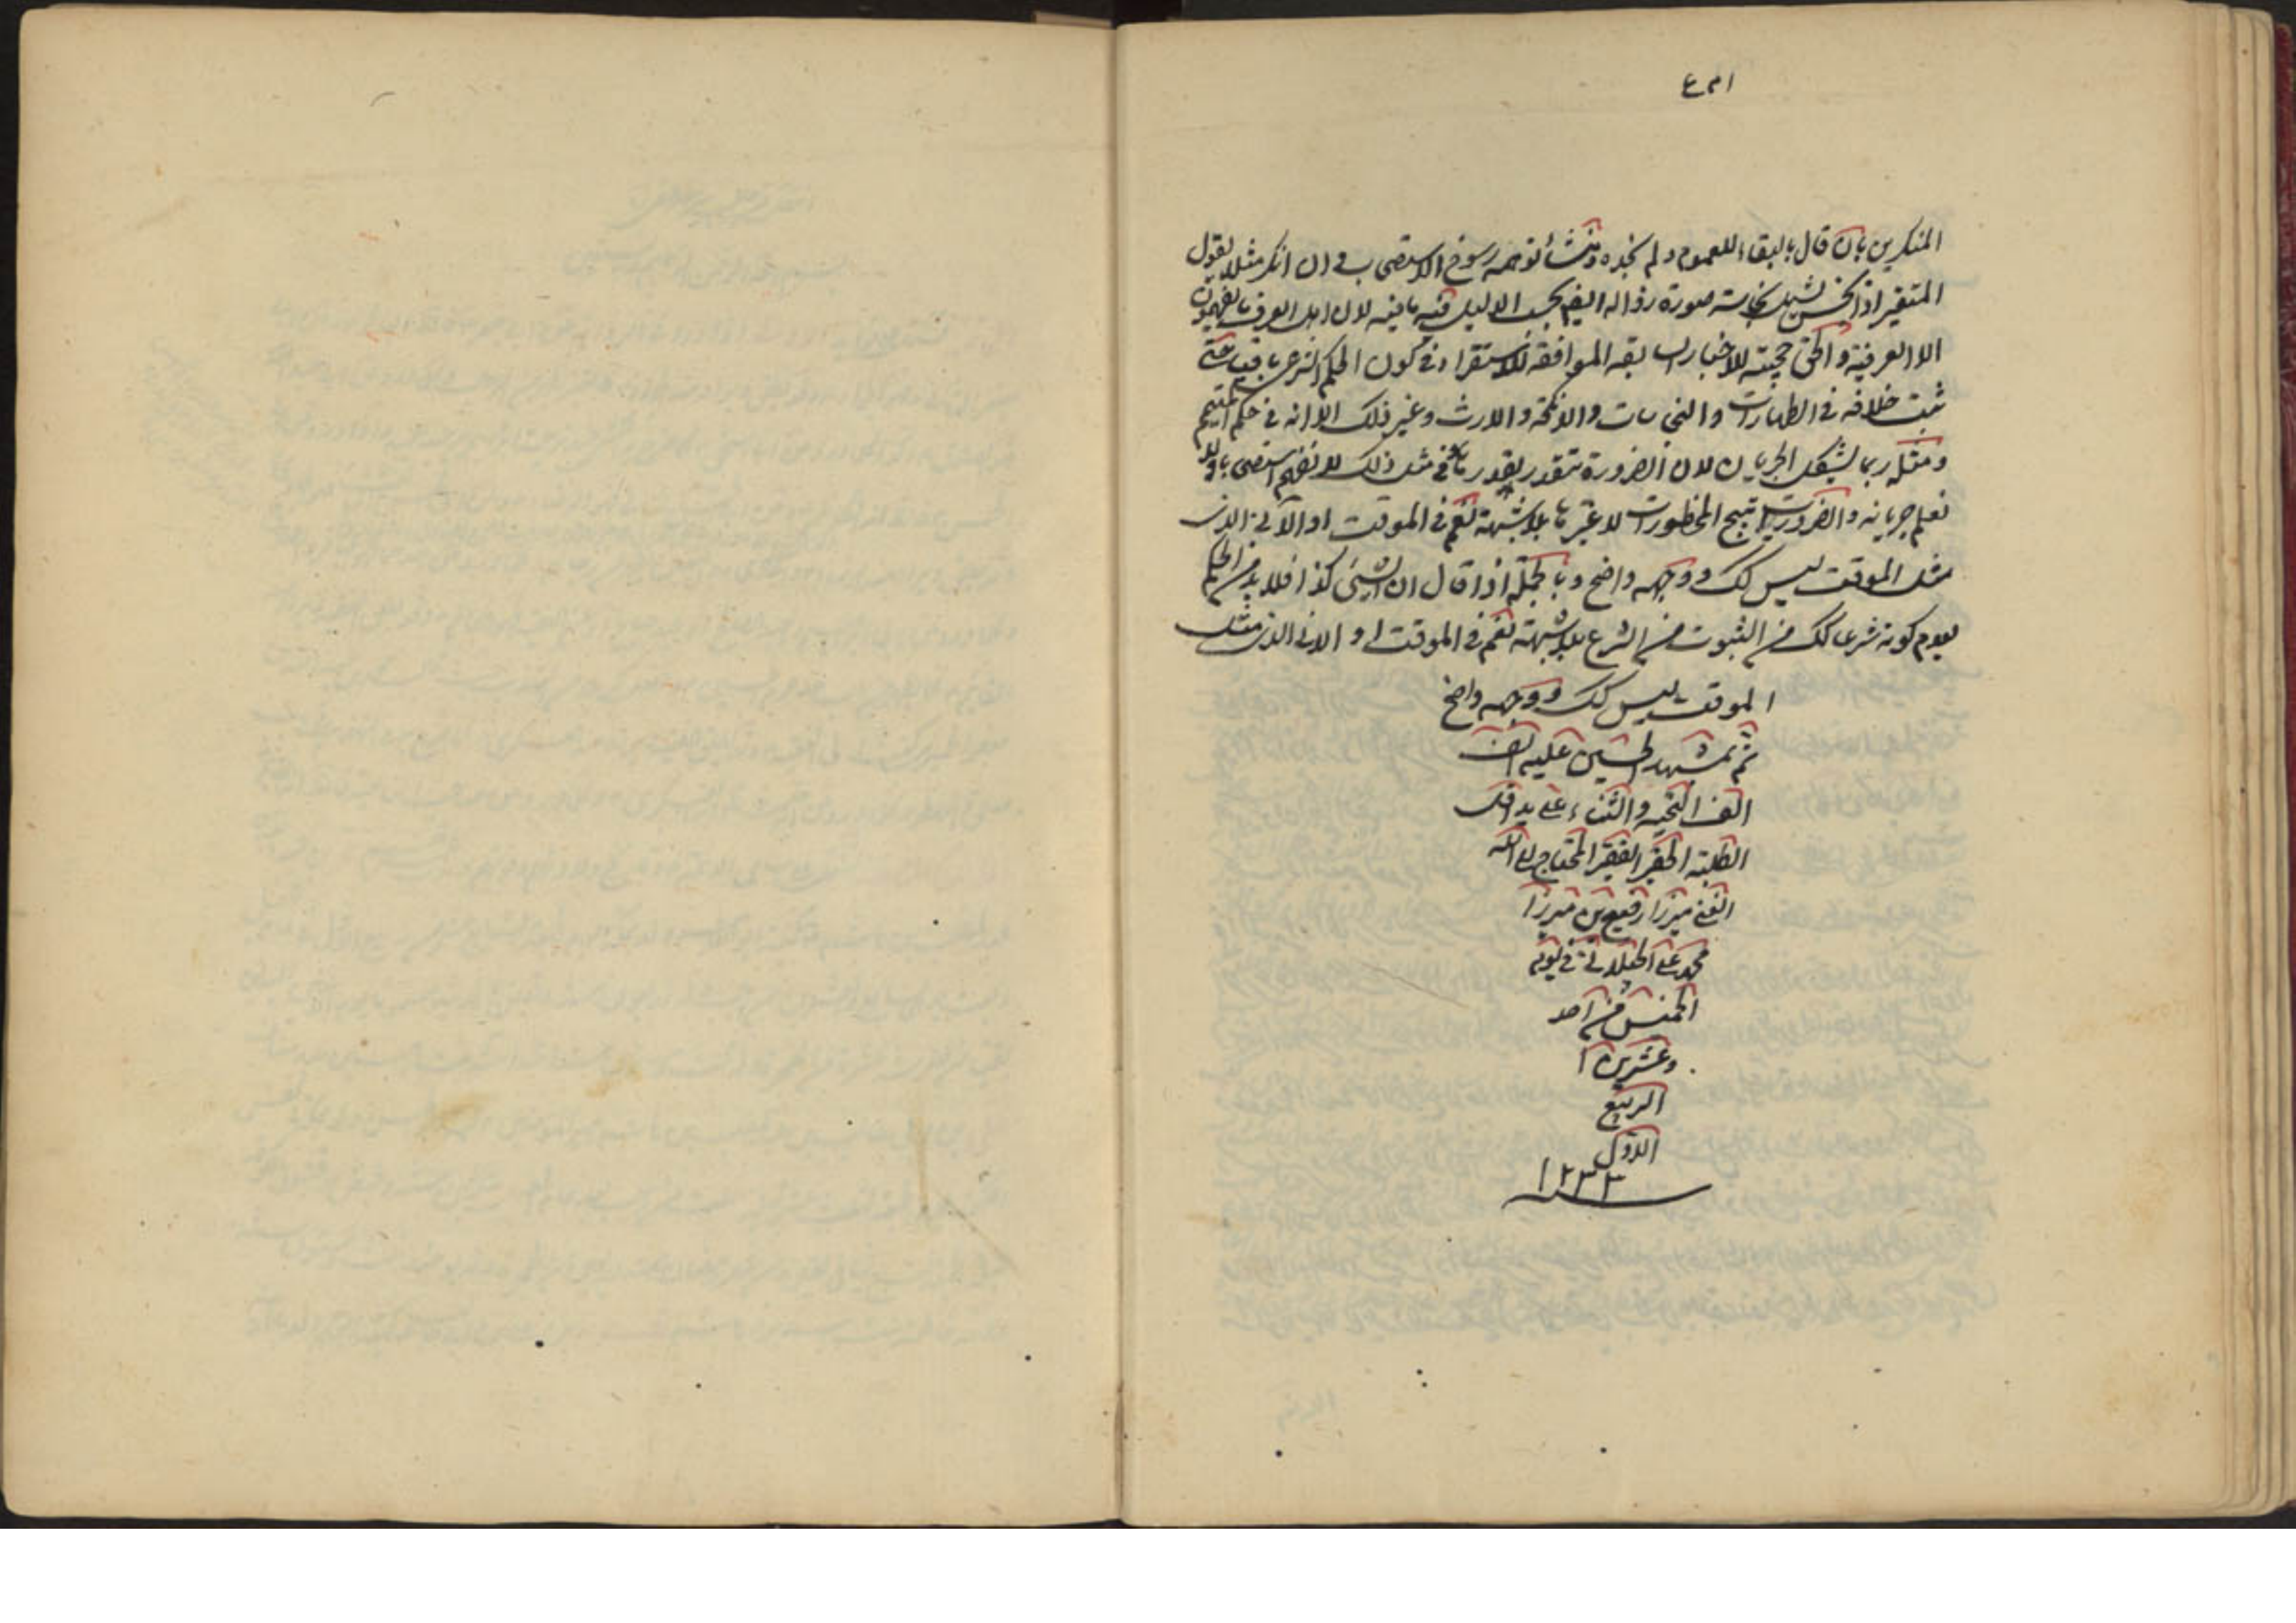 المنكرين بان قال بالبقاء للعموم ولم نجده ومنشأ توهمه رسوخ الاستصحاب في ان انكر مثلا بقول
المتغير اذا نجس نجاسته صورة زواله ايضا بحسب الدليل فيه ما فيه لان اهل العرف ما يفهمون
الا العرفية والحق حجيته للاخبار السابقه الموافقة للاستقراء في كون الحكم الشرعي باقيا حتى
ثبت خلافه في الطهارات والنجاسات والانكحة والارث وغير ذلك الا انه في حكم المتيمم
ومثله ربما يشكل الجريان لان الضرورة تتقدر بقدرها ففي مثل ذلك لا نفهم استصحابا ولا
نعلم جريانه والضرورات تبيح المحظورات لا غيرها بلا شبهة نعم في الموقت او الاني الذى
مثل الموقت ليس كك ووجهه واضح وبالجملة اذا قال ان الشىء كذا فلا بد من الحكم
بعدم كونه شرعا كك من الثبوت من الشرع بلا شبهة نعم في الموقت او الانى الذى مثل
الموقت ليس كك ووجهه واضح
تم بمشهد الحسين عليه الف
الف التحيه والثناء على يد اقل
الطلبة الحقير الفقير المحتاج الى الله
الغني ميرزا رفيع بن ميرزا
محمد على في يوم
الخمس من احد
وعشرين
الربيع
الاول
١٢٣٣